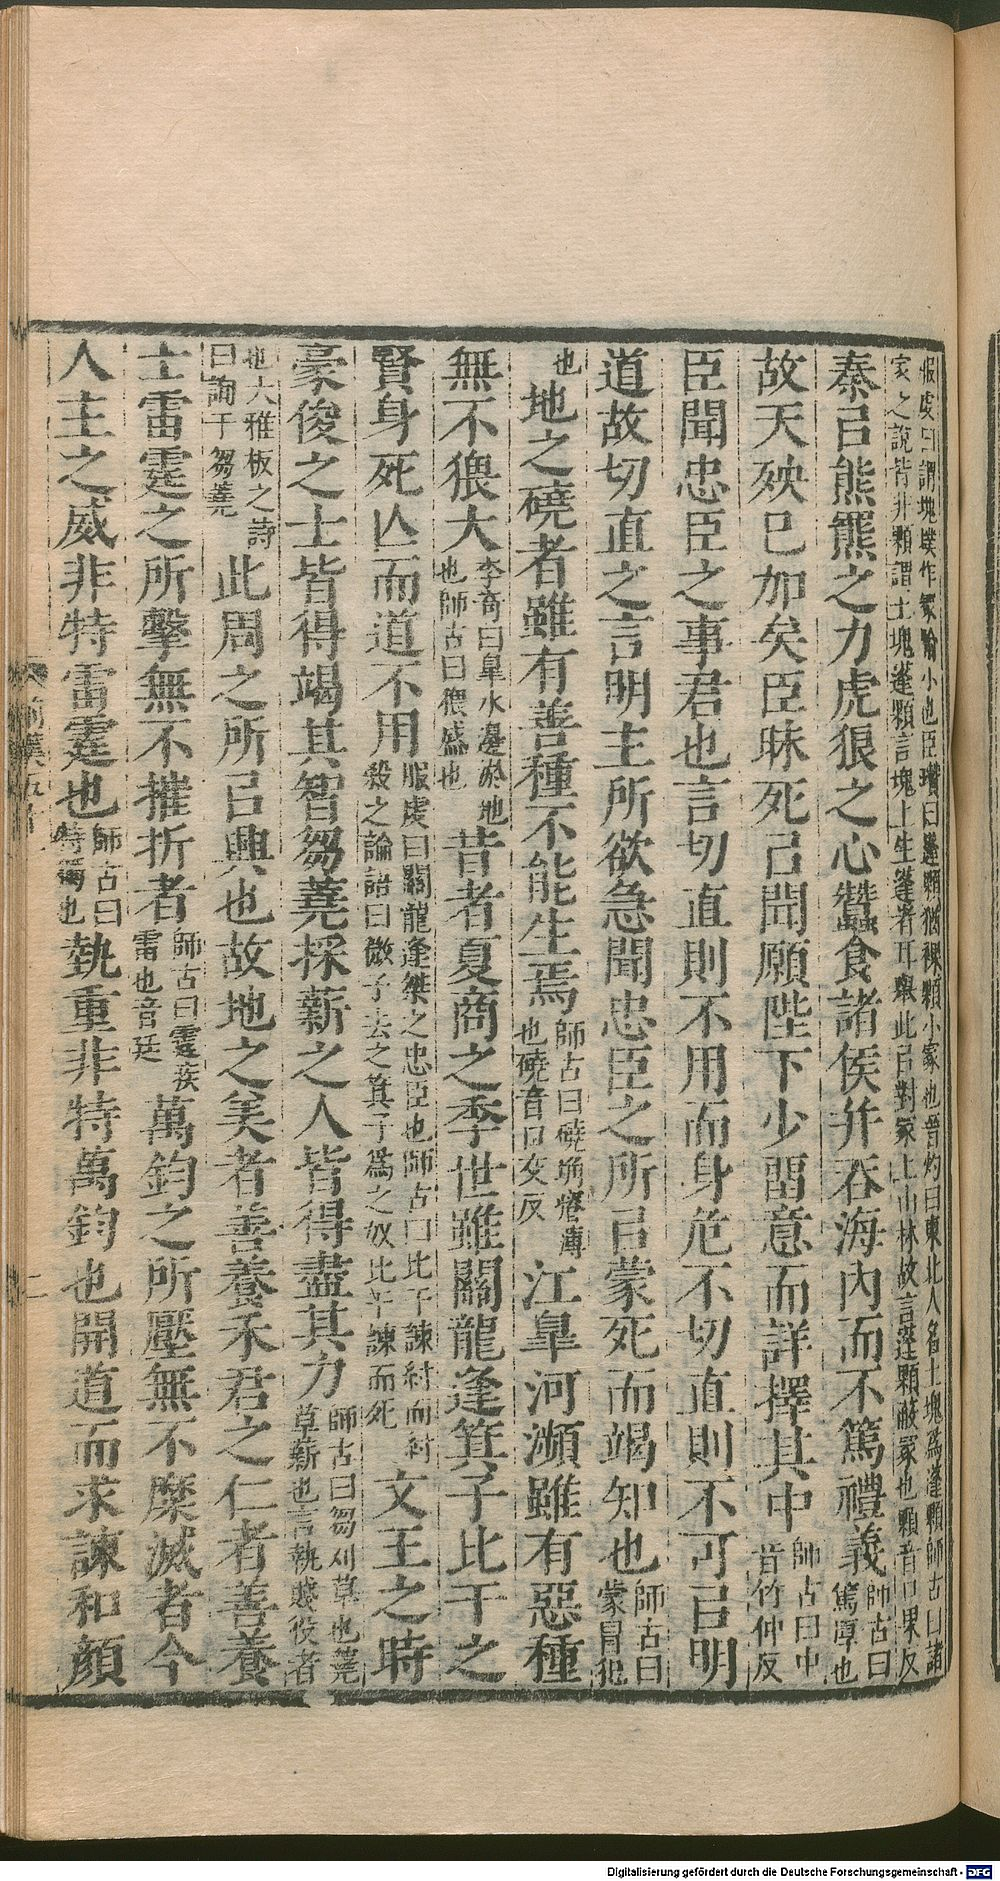 服虔曰謂塊墣作冢喻小也臣瓚曰蓬顆猶裸顆小冢也晉灼曰東北人名土塊爲蓬顆師古曰諸
家之說皆非顆謂土塊蓬顆言塊上生蓬者耳舉此㠯對冢上山林故言蓬顆蔽冢也顆音口果反
秦㠯熊羆之力虎狼之心蠶食諸侯并吞海內而不篤禮義師古曰篤厚也
故天殃已加矣臣昧死㠯聞願陛下少留意而詳擇其中師古曰中音竹仲反
臣聞忠臣之事君也言切直則不用而身危不切直則不可㠯明
道故切直之言明主所欲急聞忠臣之所㠯蒙死而竭知也師古曰蒙冒犯
也地之磽者雖有善種不能生焉師古曰磽确瘠薄也磽音口交反江皐河瀕雖有惡種
無不猥大李奇曰皐水邊淤地也師古曰猥盛也昔者夏商之季世雖關龍逢箕子比干之
賢身死亾而道不用服虔曰關龍逢桀之忠臣也師古曰比干諫紂而紂殺之論語曰微子去之箕子爲之奴比干諫而死文王之時
豪俊之士皆得竭其智芻蕘採薪之人皆得盡其力師古曰芻刈草也蕘草薪也言執賤役者
也大雅板之詩曰詢于芻蕘此周之所㠯興也故地之美者善養禾君之仁者善養
士雷霆之所擊無不摧折者師古曰霆疾雷也音廷萬鈞之所壓無不糜滅者今
人主之威非特雷霆也師古曰特獨也埶重非特萬鈞也開道而求諫和顏
前漢五十一
二
Digitalisierung gefördert durch die Deutsche Forschungsgemeinschaft - DFG